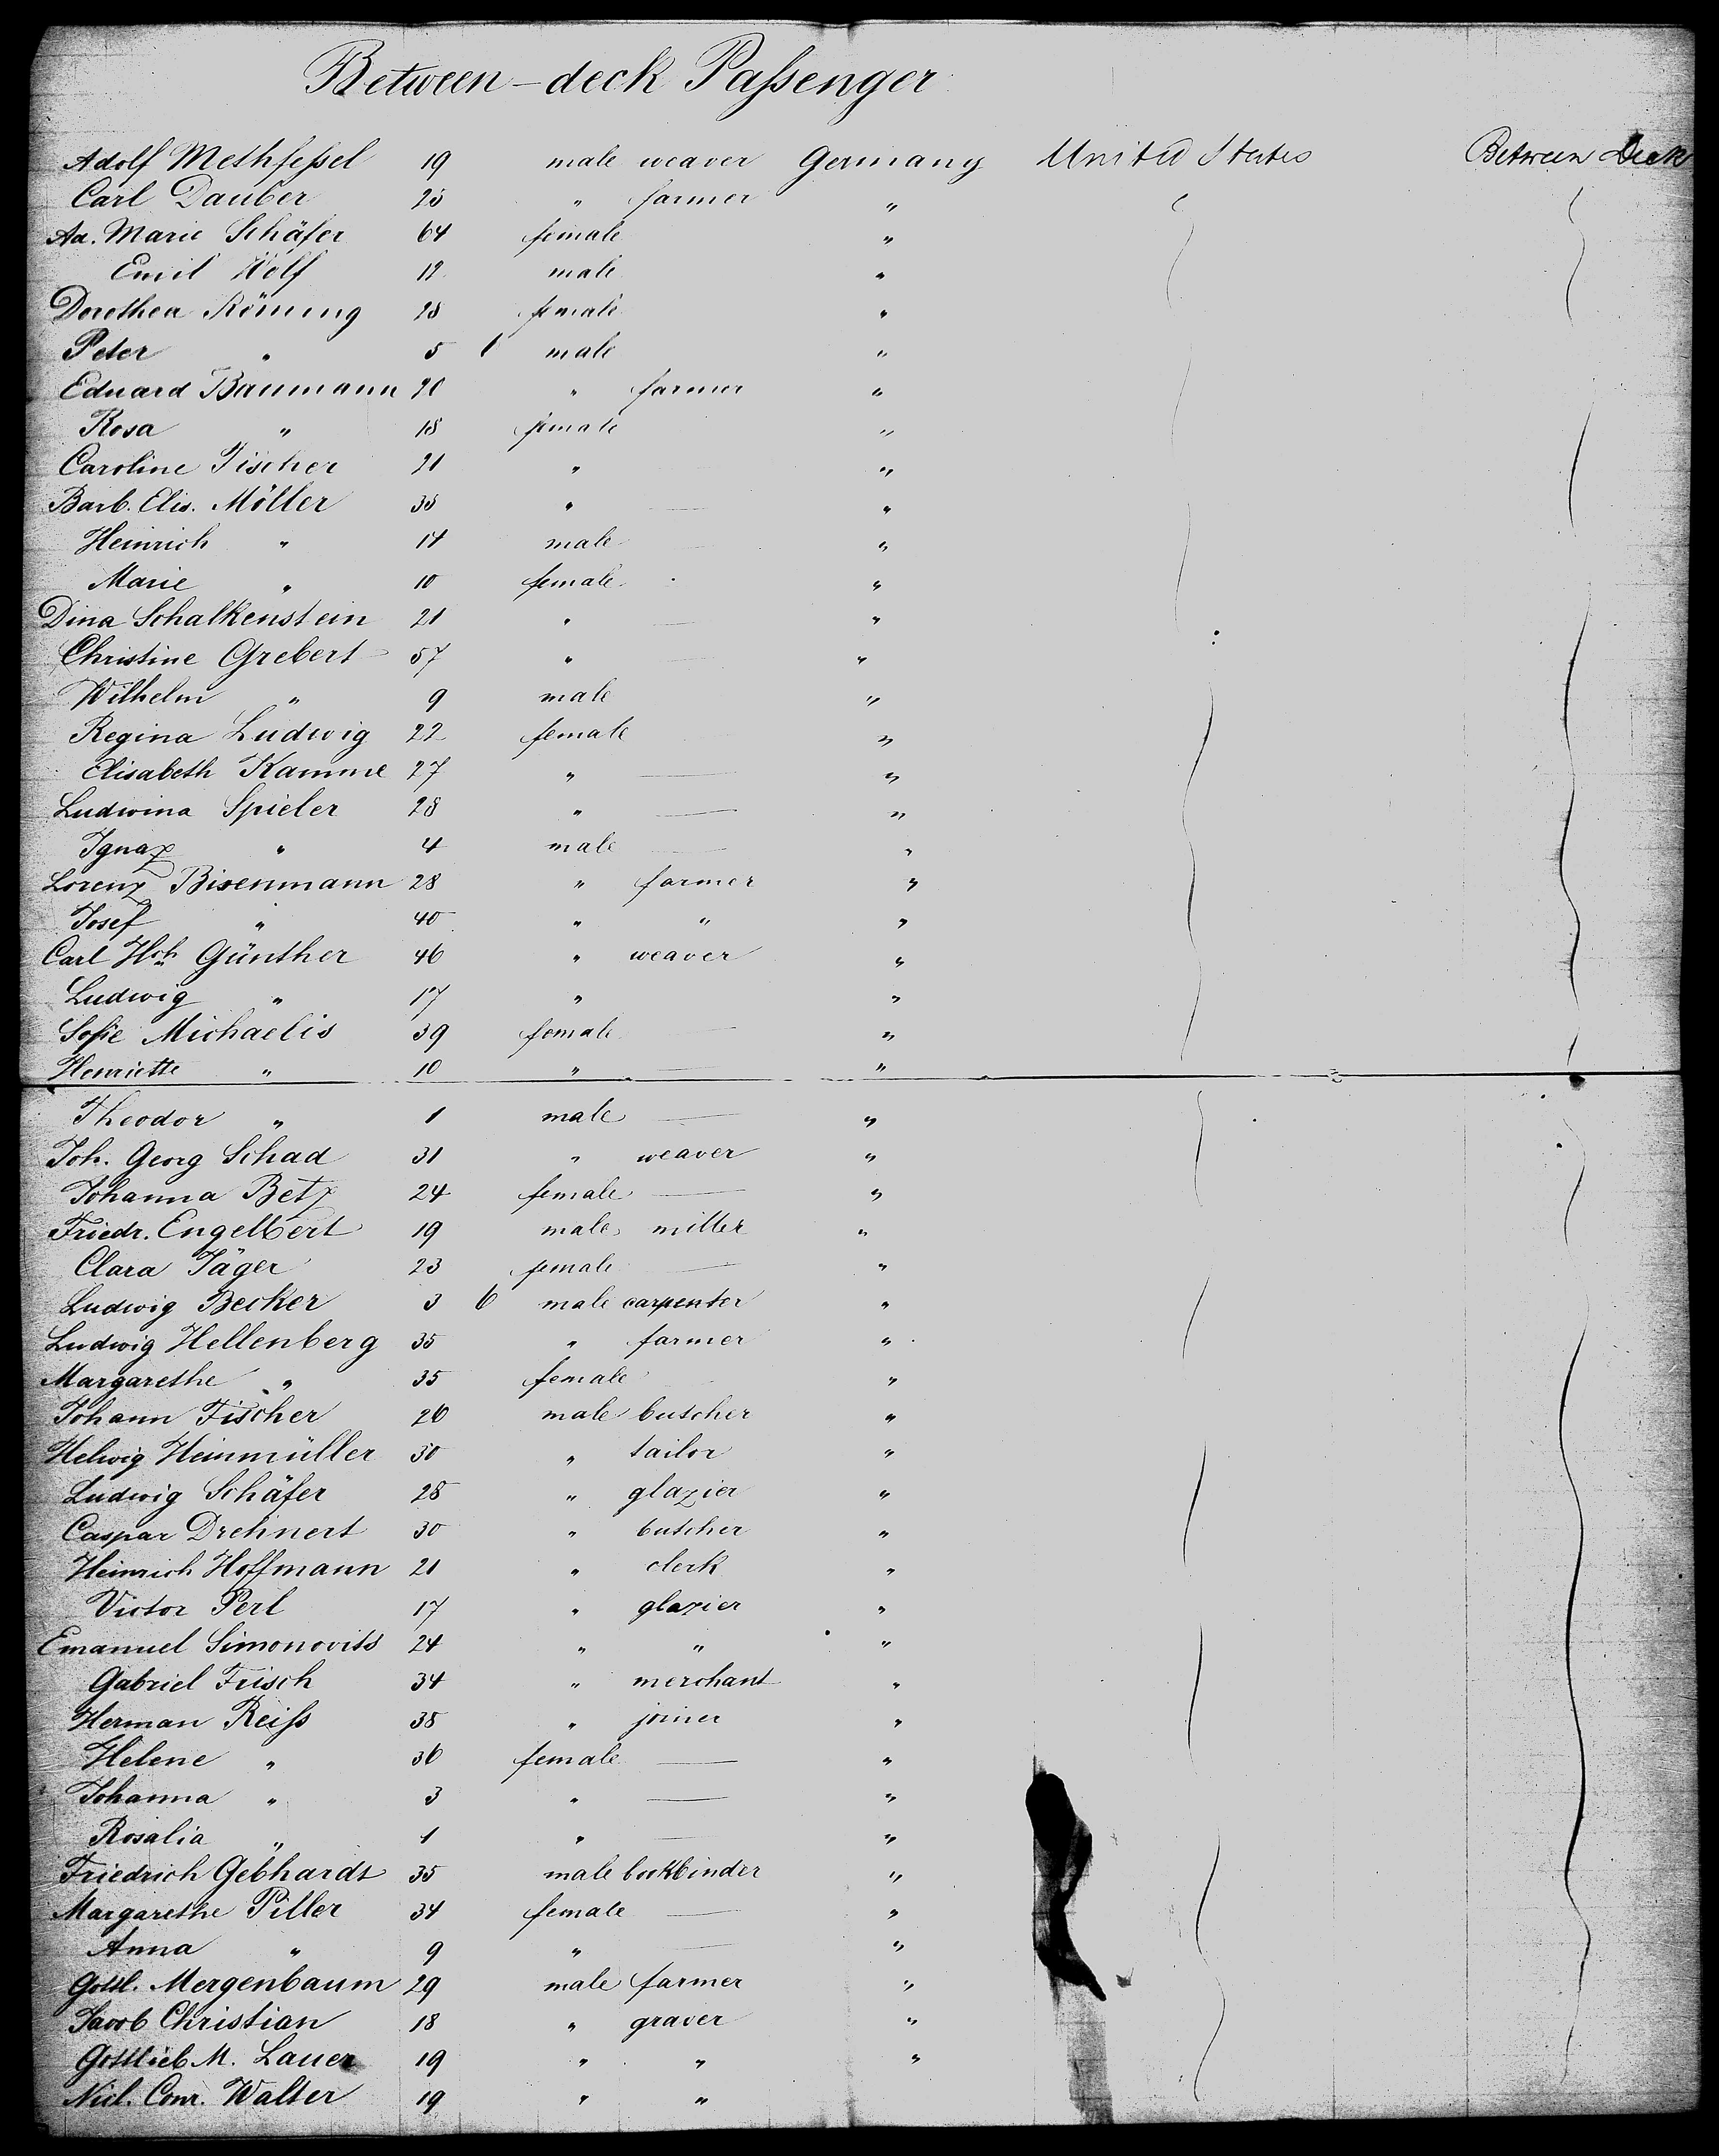 Between-deck Passenger
Adolf Methfessel 19 male weaver Germany United States Between Deck
Carl Dauber 25 " farmer "
Ad. Marie Schäfer 64 female "
Emil Wolf 12 male "
Dorothea Röming 28 female "
Peter " 5 1 male "
Eduard Baumann 20 " farmer "
Rosa " 18 female "
Caroline Fischer 21 " "
Barb. Elis. Möller 35 " — "
Heinrich " 14 male "
Marie " 10 female "
Dina Schalkenstein 21 " — "
Christine Grebert 57 " — "
Wilhelm " 9 male "
Regina Ludwig 22 female "
Elisabeth Kamme 27 " — "
Ludwina Spieler 28 " — "
Ignaz " 4 male — "
Lorenz Bisenmann 28 " farmer "
Josef " 40 " " "
Carl Hch Günther 46 " weaver "
Ludwig " 17 " "
Sofie Michaelis 39 female — "
Henriette " 10 " — "
Theodor " 1 male — "
Joh. Georg Schad 31 " weaver "
Johanna Betz 24 female — "
Friedr. Engelbert 19 male miller "
Clara Jäger 23 female — "
Ludwig Becker 3 6 male carpenter "
Ludwig Hellenberg 35 " farmer "
Margarethe " 35 female "
Johann Fischer 26 male butcher "
Helwig Heinmüller 30 " tailor "
Ludwig Schäfer 28 " glazier "
Caspar Drehnert 30 " butcher "
Heinrich Hoffmann 21 " clerk "
Victor Perl 17 " glazier "
Emanuel Simonovits 24 " " "
Gabriel Frisch 34 " merchant "
Herman Reiss 38 " joiner "
Helene " 36 female — "
Johanna " 3 " — "
Rosalia " 1 " — "
Friedrich Gebhardt 35 male bookbinder "
Margarethe Piller 34 female — "
Anna " 9 " — "
Gottl. Mergenbaum 29 male farmer "
Jacob Christian 18 " graver "
Gottlieb M. Lauer 19 " " "
Nicl. Conr. Walter 19 " "